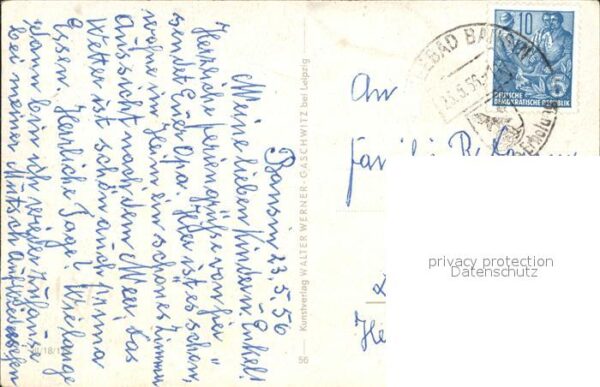 Bansin 23.5.56
Meine lieben Kinder u. Enkel!
Herzliche Feriengrüße von hier
sendet Euch Opa. Hier ist es schön,
wohne im Heim ein schönes Zimmer
Aussicht nach dem Meer, das
Wetter ist schön auch prima
Essen. Herrliche Tage! Wie lange
dann bin ich wieder zuhause
bei meiner Mutsch auf Wiedersehen
Kunstverlag WALTER WERNER · GASCHWITZ bei Leipzig
56
An
Familie
He
SEEBAD BANSIN
23.5.56
10
5
DEUTSCHE
DEMOKRATISCHE REPUBLIK
privacy protection
Datenschutz